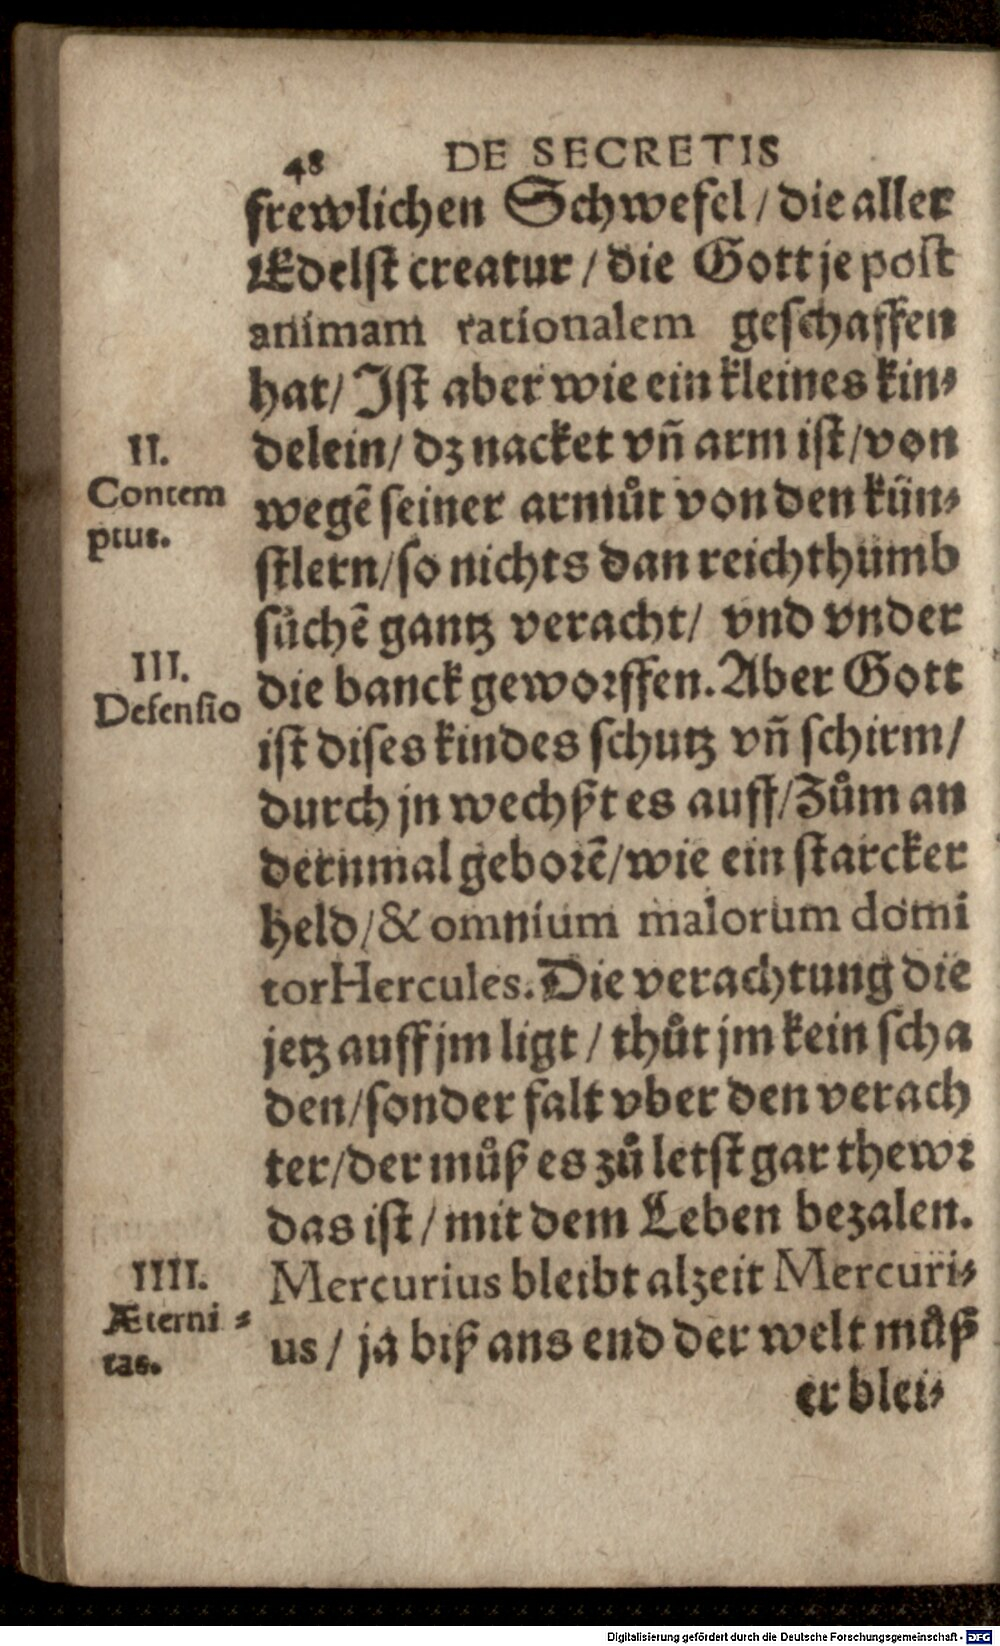 48 DE SECRETIS
frewlichen Schwefel / die aller
Edelst creatur / die Gott je post
animam rationalem geschaffen
hat / Ist aber wie ein kleines kin⸗
II.
delein / dz nacket vñ arm ist / von
Contem
wegẽ seiner armůt von den kün⸗
ptus.
stlern / so nichts dan reichthůmb
sůchẽ gantz veracht / vnd vnder
III.
die banck geworffen. Aber Gott
Defensio
ist dises kindes schutz vñ schirm /
durch jn wechßt es auff / Zům an
dernmal geborẽ / wie ein starcker
held / & omnium malorum domi
tor Hercules. Die verachtung die
jetz auff jm ligt / thůt jm kein scha
den / sonder falt vber den verach
ter / der můß es zů letst gar thewr
das ist / mit dem Leben bezalen.
IIII.
Mercurius bleibt alzeit Mercuri⸗
Æterni⸗
us / ja biß ans end der welt můß
tas.
er blei⸗
Digitalisierung gefördert durch die Deutsche Forschungsgemeinschaft - DFG